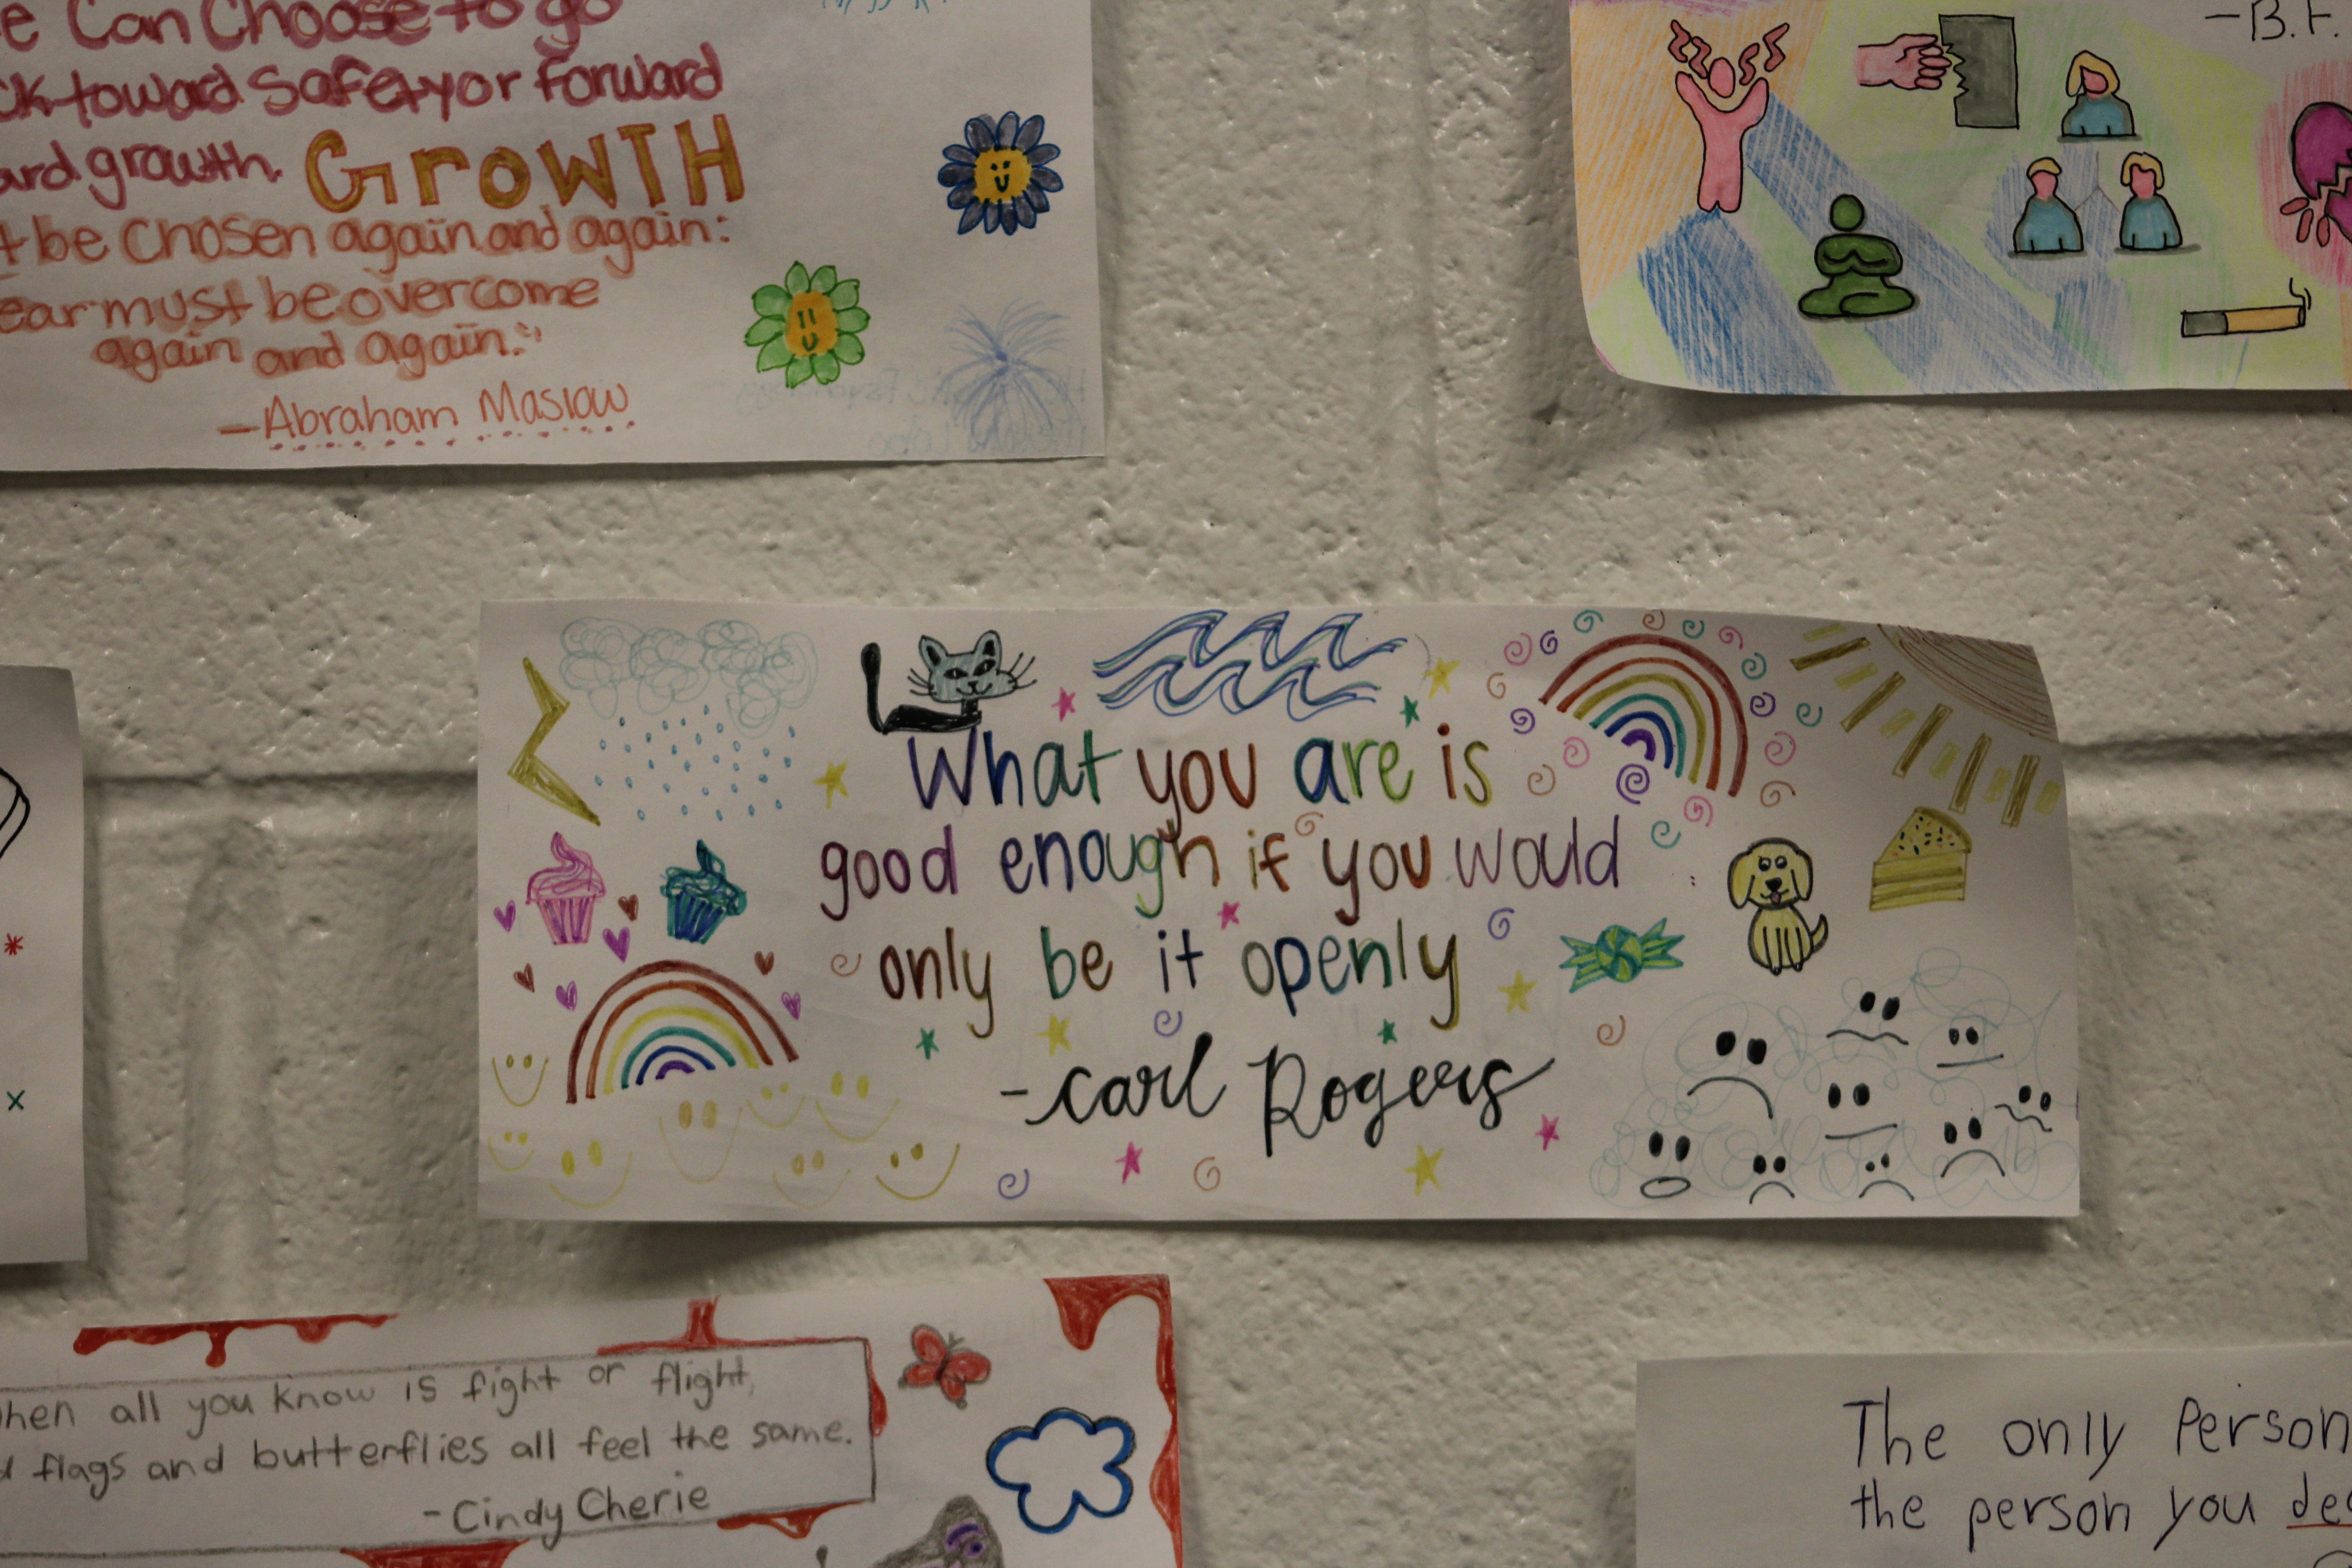 Can Choose to go
toward safety or forward
growth. GROWTH
be chosen again and again:
must be overcome
again and again."
-Abraham Maslow
-B.F.
What you are is
good enough if you would
only be it openly
-Carl Rogers
all you know is fight or flight,
flags and butterflies all feel the same.
-Cindy Cherie
The only Person
the person you